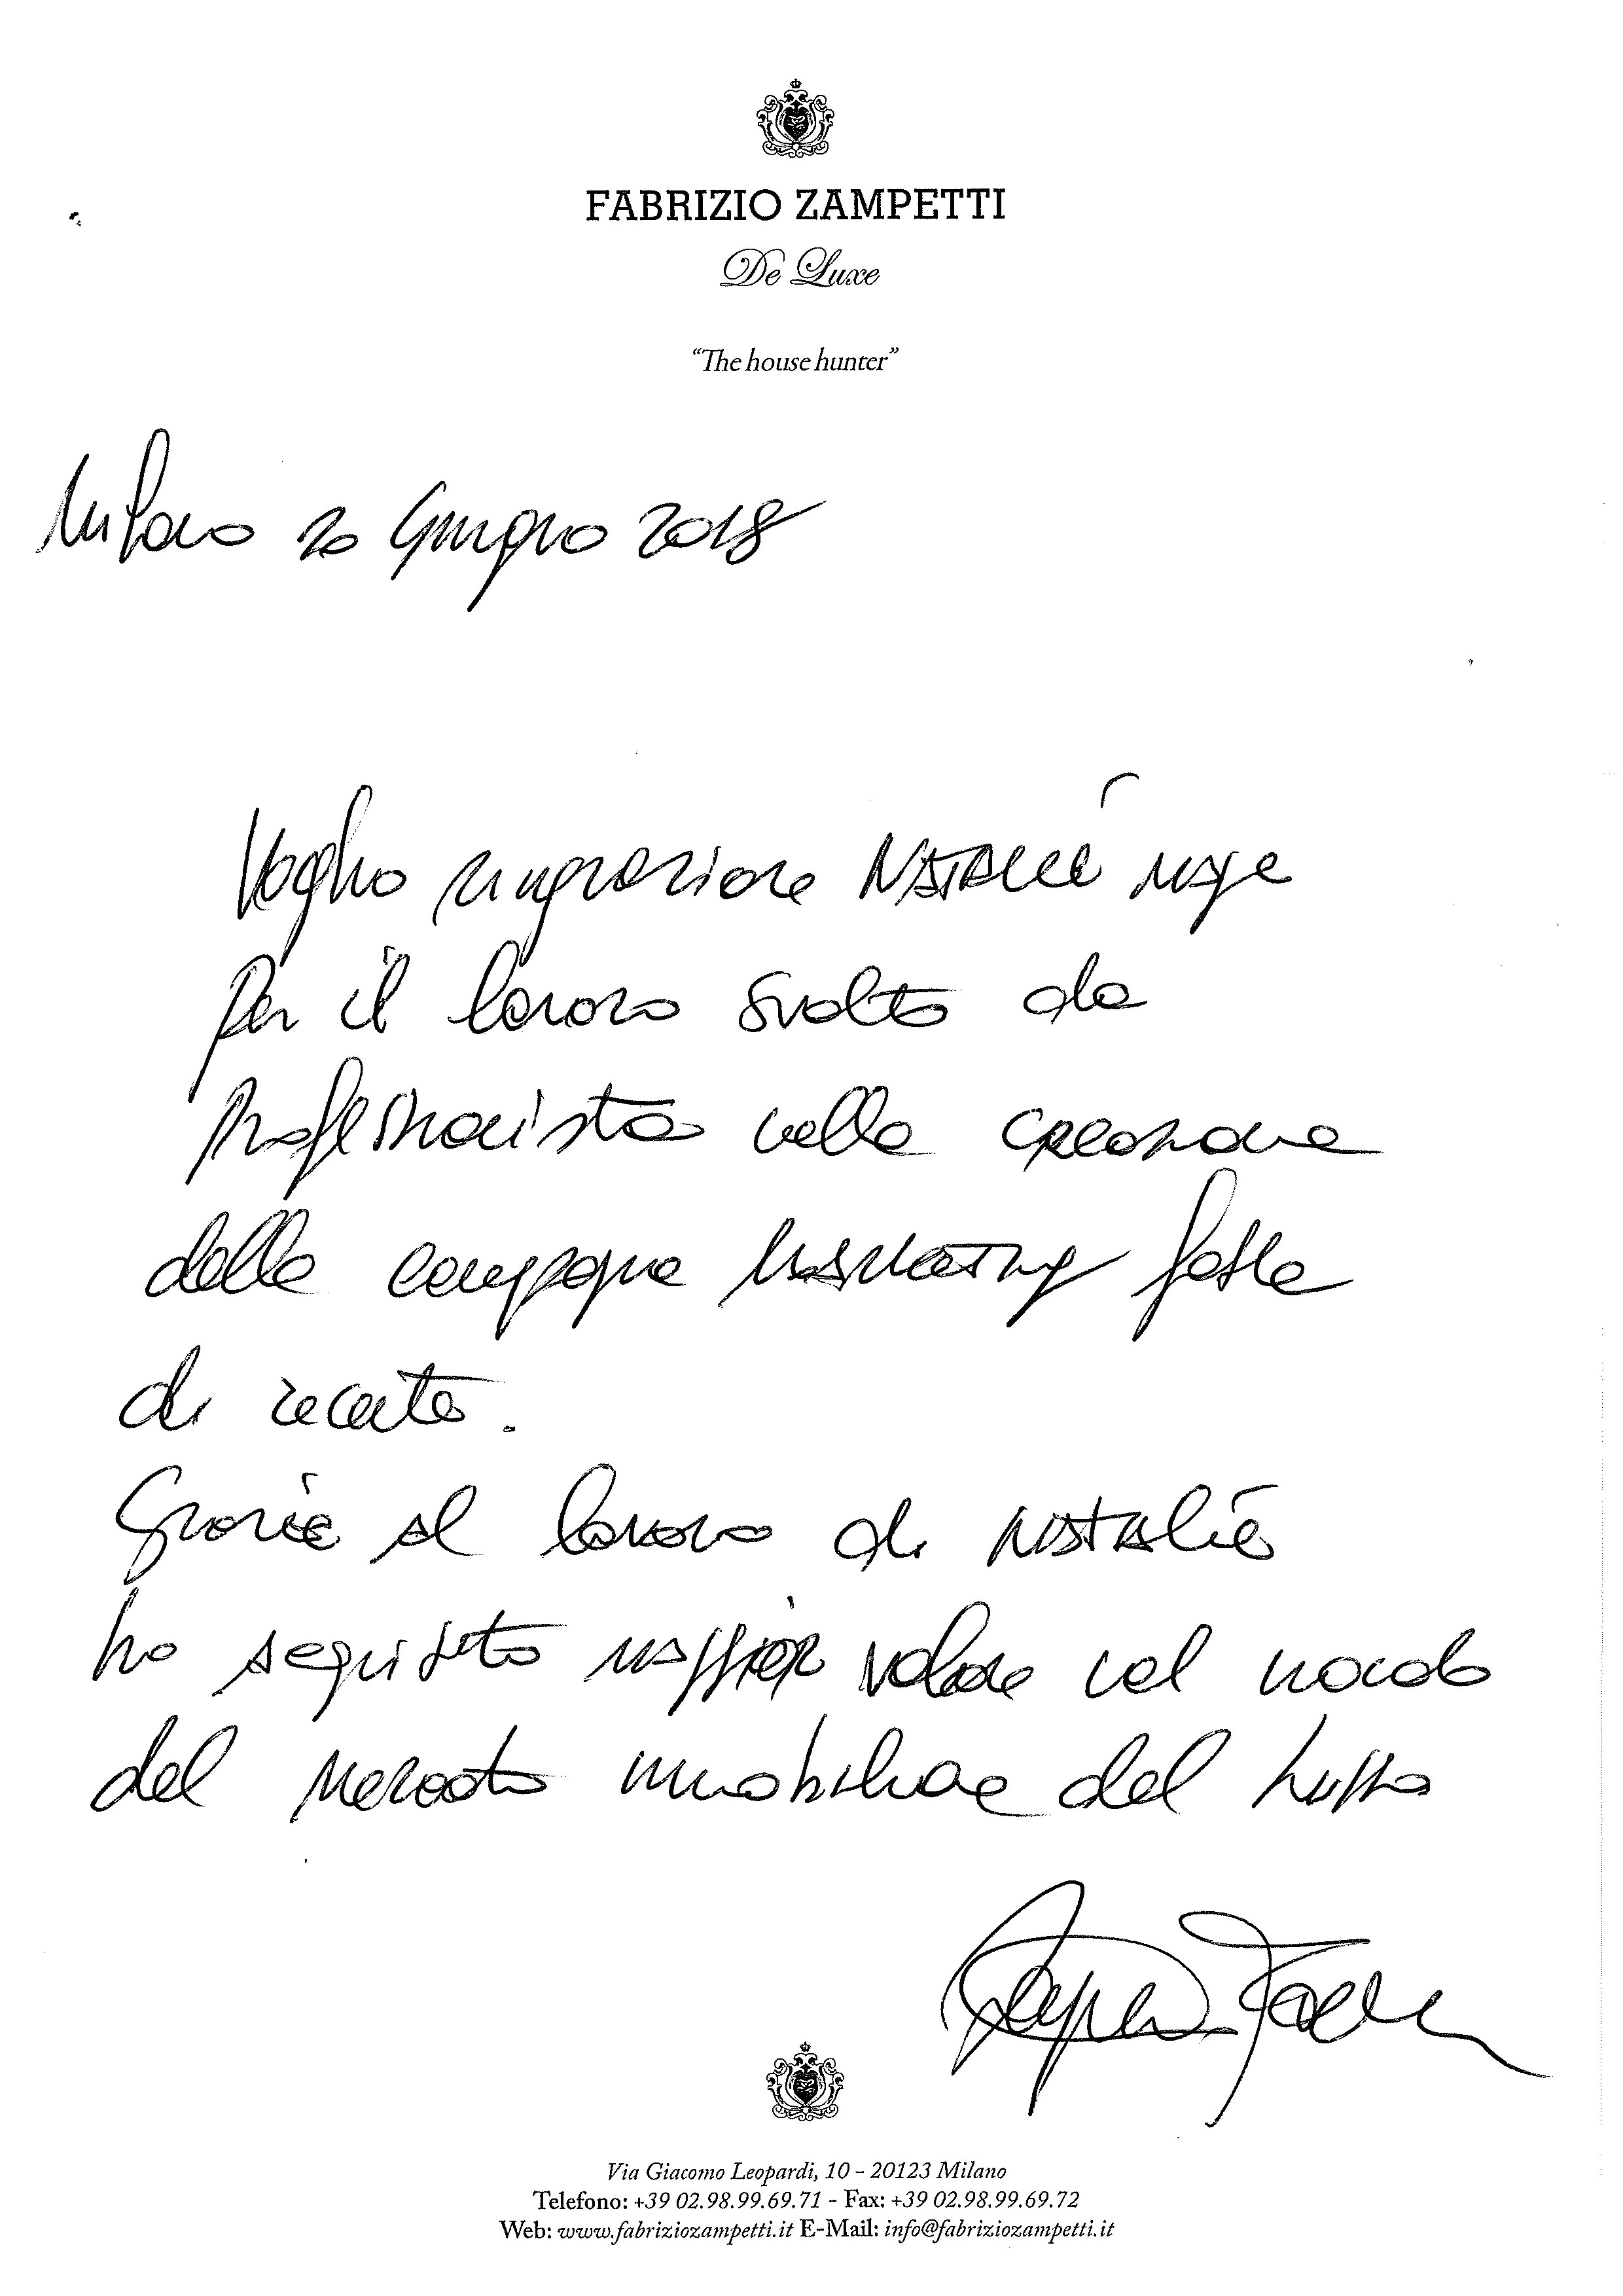 FABRIZIO ZAMPETTI
De Luxe
“The house hunter”
Milano 20 Giugno 2018
Voglio ringraziare NATALIE
per il lavoro svolto da
professionista nella creazione
della campagna marketing fatta
di recente.
Grazie al lavoro di NATALIE
ho seguito maggior valore nel mondo
del mercato immobiliare del lusso
Via Giacomo Leopardi, 10 – 20123 Milano
Telefono: +39 02.98.99.69.71 – Fax: +39 02.98.99.69.72
Web: www.fabriziozampetti.it E-Mail: info@fabriziozampetti.it